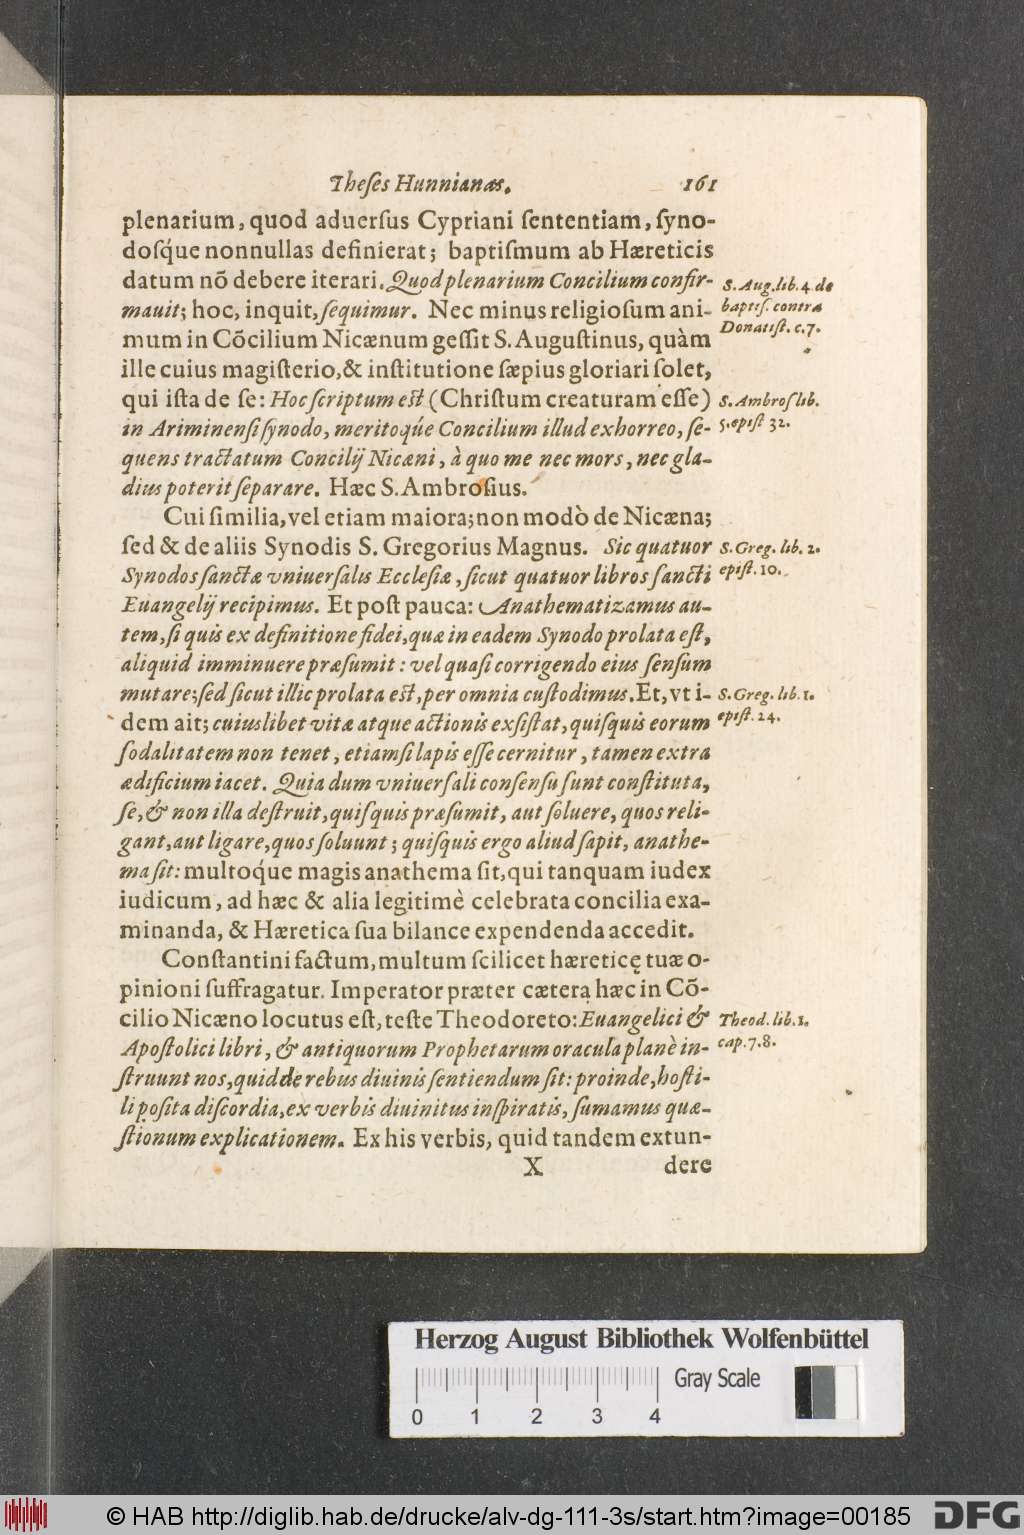 Theſes Hunnianas. 161
plenarium, quod aduerſus Cypriani ſententiam, ſyno-
doſq́ue nonnullas definierat; baptiſmum ab Hæreticis
datum nõ debere iterari. Quod plenarium Concilium confir-
mauit; hoc, inquit, ſequimur. Nec minus religioſum ani-
mum in Cõcilium Nicænum geſſit S. Auguſtinus, quàm
ille cuius magiſterio, & inſtitutione ſæpius gloriari ſolet,
qui iſta de ſe: Hoc ſcriptum eſt (Chriſtum creaturam eſſe)
in Ariminenſi ſynodo, meritoq́ue Concilium illud exhorreo, ſe-
quens tractatum Concilij Nicæni, à quo me nec mors, nec gla-
dius poterit ſeparare. Hæc S. Ambroſius.
S. Aug. lib. 4. de
baptiſ. contra
Donatiſt. c. 7.
S. Ambroſ lib.
5. epiſt 32.
Cui ſimilia, vel etiam maiora; non modò de Nicæna;
ſed & de aliis Synodis S. Gregorius Magnus. Sic quatuor
Synodos ſanctæ vniuerſalis Eccleſiæ, ſicut quatuor libros ſancti
Euangelij recipimus. Et poſt pauca: Anathematizamus au-
tem, ſi quis ex definitione fidei, quæ in eadem Synodo prolata eſt,
aliquid imminuere præſumit: vel quaſi corrigendo eius ſenſum
mutare; ſed ſicut illic prolata eſt, per omnia cuſtodimus. Et, vt i-
dem ait; cuiuslibet vitæ atque actionis exſiſtat, quiſquis eorum
ſodalitatem non tenet, etiamſi lapis eſſe cernitur, tamen extra
ædificium iacet. Quia dum vniuerſali conſenſu ſunt conſtituta,
ſe, & non illa deſtruit, quiſquis præſumit, aut ſoluere, quos reli-
gant, aut ligare, quos ſoluunt; quiſquis ergo aliud ſapit, anathe-
ma ſit: multoq́ue magis anathema ſit, qui tanquam iudex
iudicum, ad hæc & alia legitimè celebrata concilia exa-
minanda, & Hæretica ſua bilance expendenda accedit.
S. Greg. lib. 2.
epiſt. 10.
S. Greg. lib. 1.
epiſt. 24.
Conſtantini factum, multum ſcilicet hæreticę tuæ o-
pinioni ſuffragatur. Imperator præter cætera hæc in Cõ-
cilio Nicæno locutus eſt, teſte Theodoreto: Euangelici &
Apoſtolici libri, & antiquorum Prophetarum oracula planè in-
ſtruunt nos, quid de rebus diuinis ſentiendum ſit: proinde, hoſti-
li poſita diſcordia, ex verbis diuinitus inſpiratis, ſumamus quæ-
ſtionum explicationem. Ex his verbis, quid tandem extun-
Theod. lib. 1.
cap. 7. 8.
X dere
Herzog August Bibliothek Wolfenbüttel
Gray Scale
0 1 2 3 4
© HAB http://diglib.hab.de/drucke/alv-dg-111-3s/start.htm?image=00185
DFG